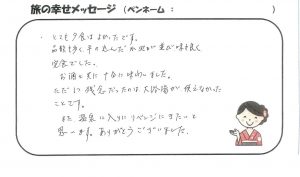 旅の幸せメッセージ (ペンネーム : )
・とても夕食はよかったです。
品数も多く手の込んだお皿が並び味も良く
完食でした。
お酒と共に十分に味わいました。
ただ1つ残念だったのは大浴場が使えなかった
ことです。
また温泉に入りにリベンジにきたいと
思います。ありがとうございました。